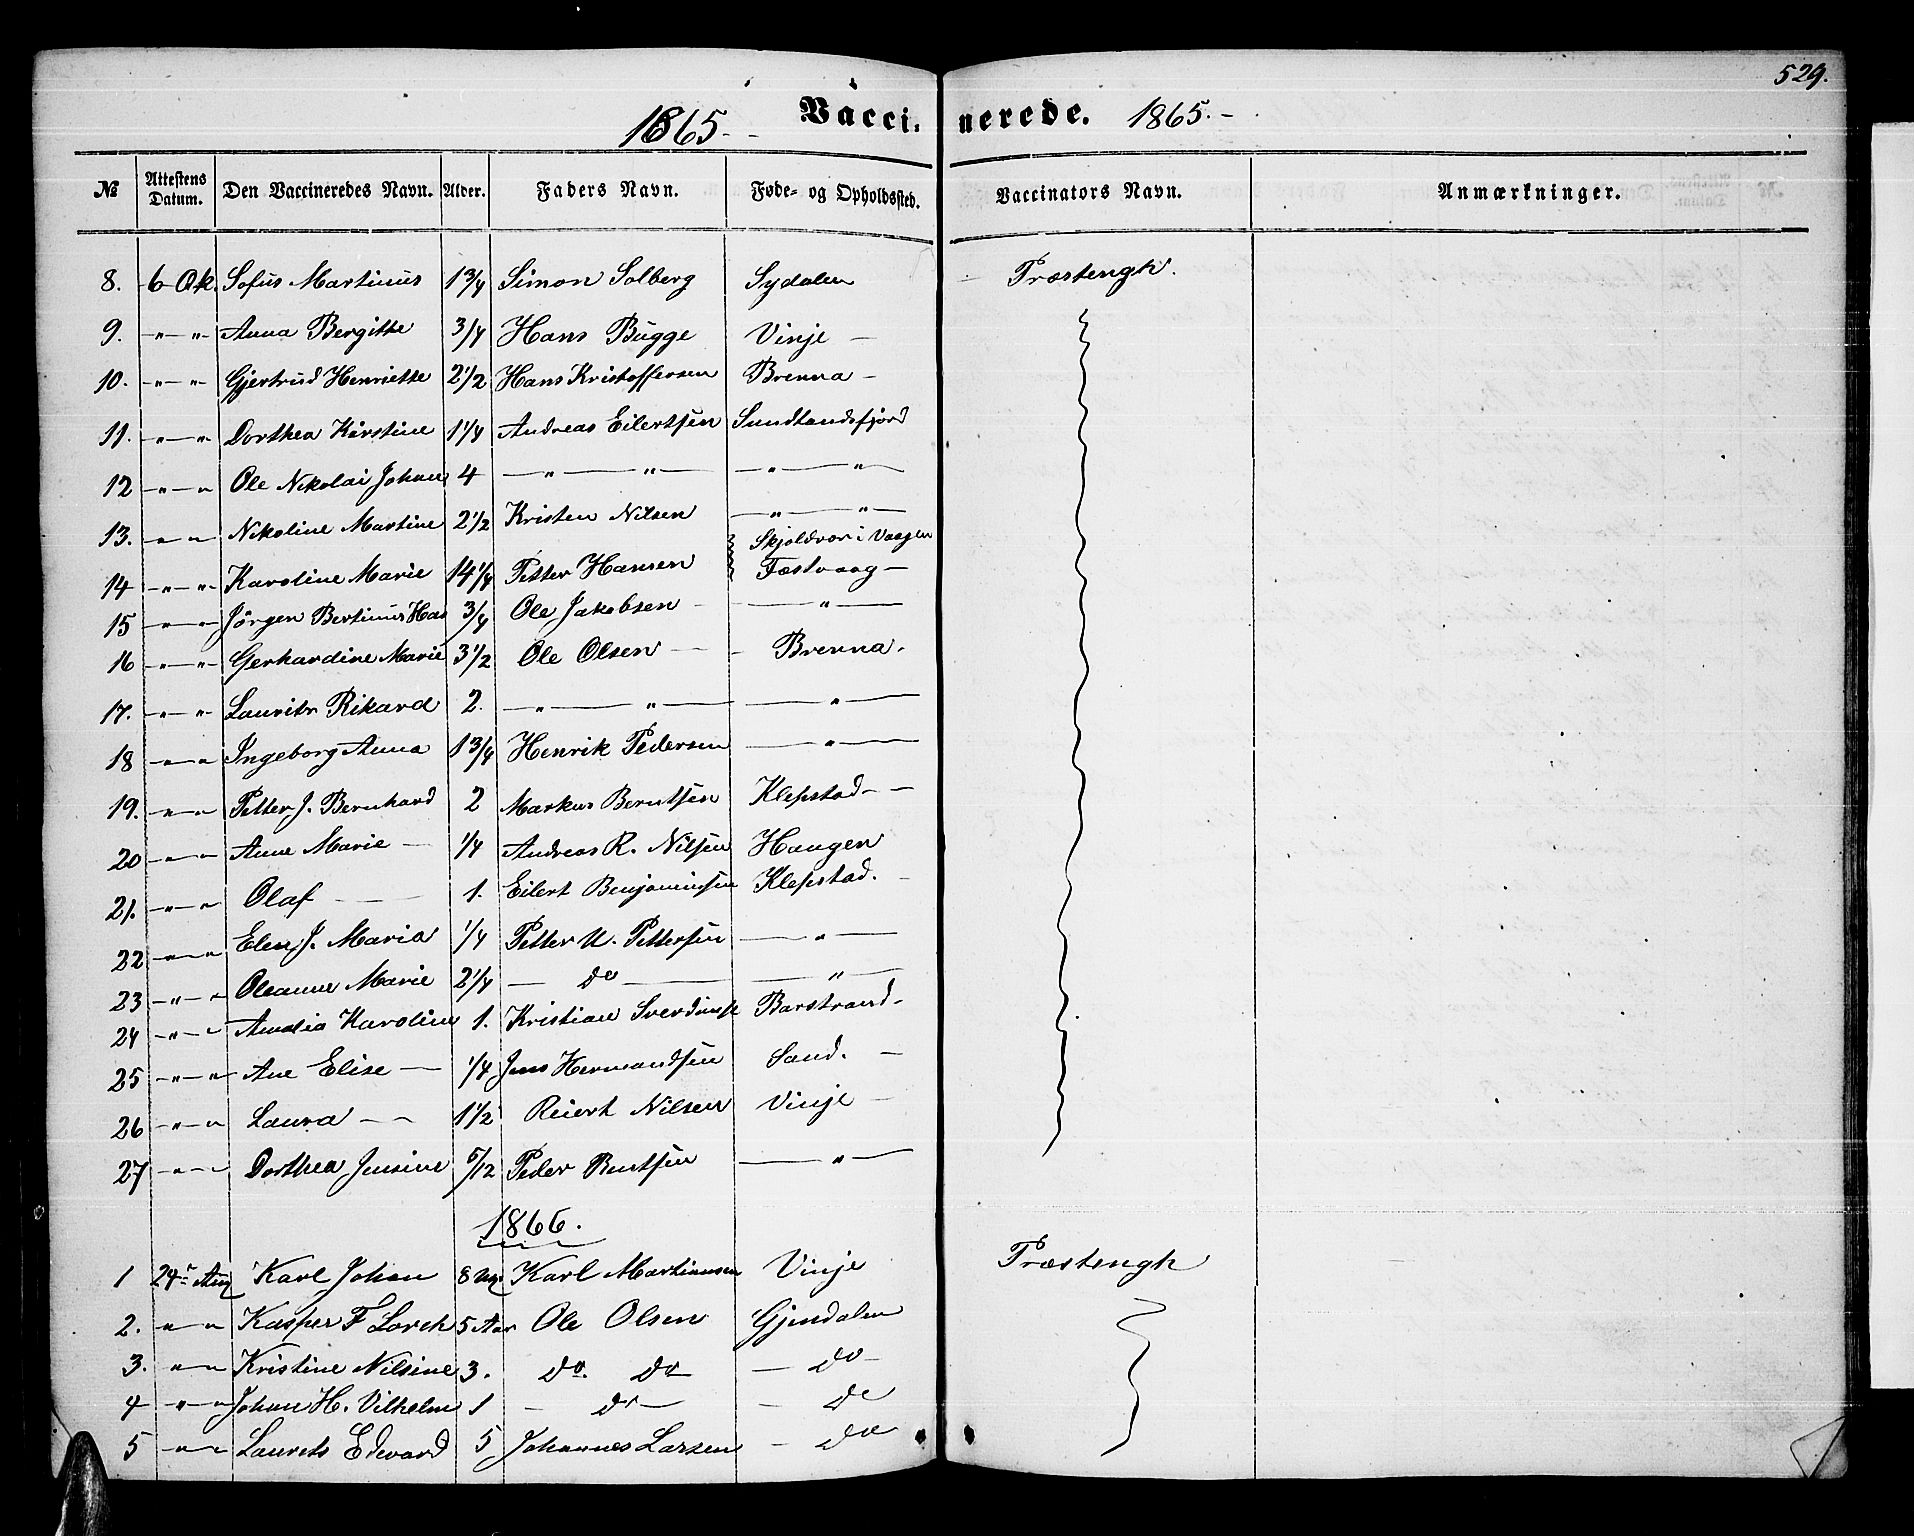 529.
1865. Vacci- nerede. 1865.
№ Attestens Datum. Den Vaccineredes Navn. Alder. Faders Navn. Føde- og Opholdssted. Vaccinators Navn. Anmærkninger.
8. 6 Ok. Sofus Martinus 1 3/4 Simon Solberg Sydalen Præstengh.
9. " " Anna Bergitte 3/4 Hans Bugge Vinje
10. " " Gjertrud Henriette 2 1/2 Hans Kristoffersen Brenna
11. " " Dorthea Kirstine 1 1/4 Andreas Eilertsen Sundlandsfjord
12 " " Ole Nikolai Johan 4 " " " "
13. " " Nikoline Martine 2 1/2 Kristen Nilsen " "
Skjoldvor i Vaagen
14 " " Karoline Marie 14 1/4 Petter Hansen Fæstvaag
15 " " Jörgen Bertinus Has 3/4 Ole Jakobsen "
16 " " Gerhardine Marie 3 1/2 Ole Olsen Brenna.
17. " " Laurits Rikard 2. " " "
18 " " Ingeborg Anna 1 3/4 Henrik Pedersen "
19. " " Petter J. Bernhard 2 Markus Berntsen Klepstad
20 " " Anne Marie 1/4 Andreas R. Nilsen Haugen
21. " " Olaf 1. Eilert Benjaminsen Klepstad.
22 " " Elen J. Maria 1/4 Petter U. Pettersen "
23 " " Oleanne Marie 2 1/4 do "
24 " " Amalia Karoline 1. Kristian Sverdrup Barstrand
25 " " Ane Elise 1/4 Jens Hermandsen Sand.
26 " " Laura 1 1/2 Reiert Nilsen Vinje
27 " " Dorthea Jensine 5/12 Peder Bentsen "
1866.
1 24de Aug Karl Johan 8 Mg Karl Martinusen Vinje Præstengh
2. " " Kasper F Lorch 5 Aar Ole Olsen Gjendalen
3. " " Kristine Nilsine 3. do. do do
4 " " Johan H. Vilhelm 1 do do
5 " " Laurets Edvard 5 Johannes Larsen do